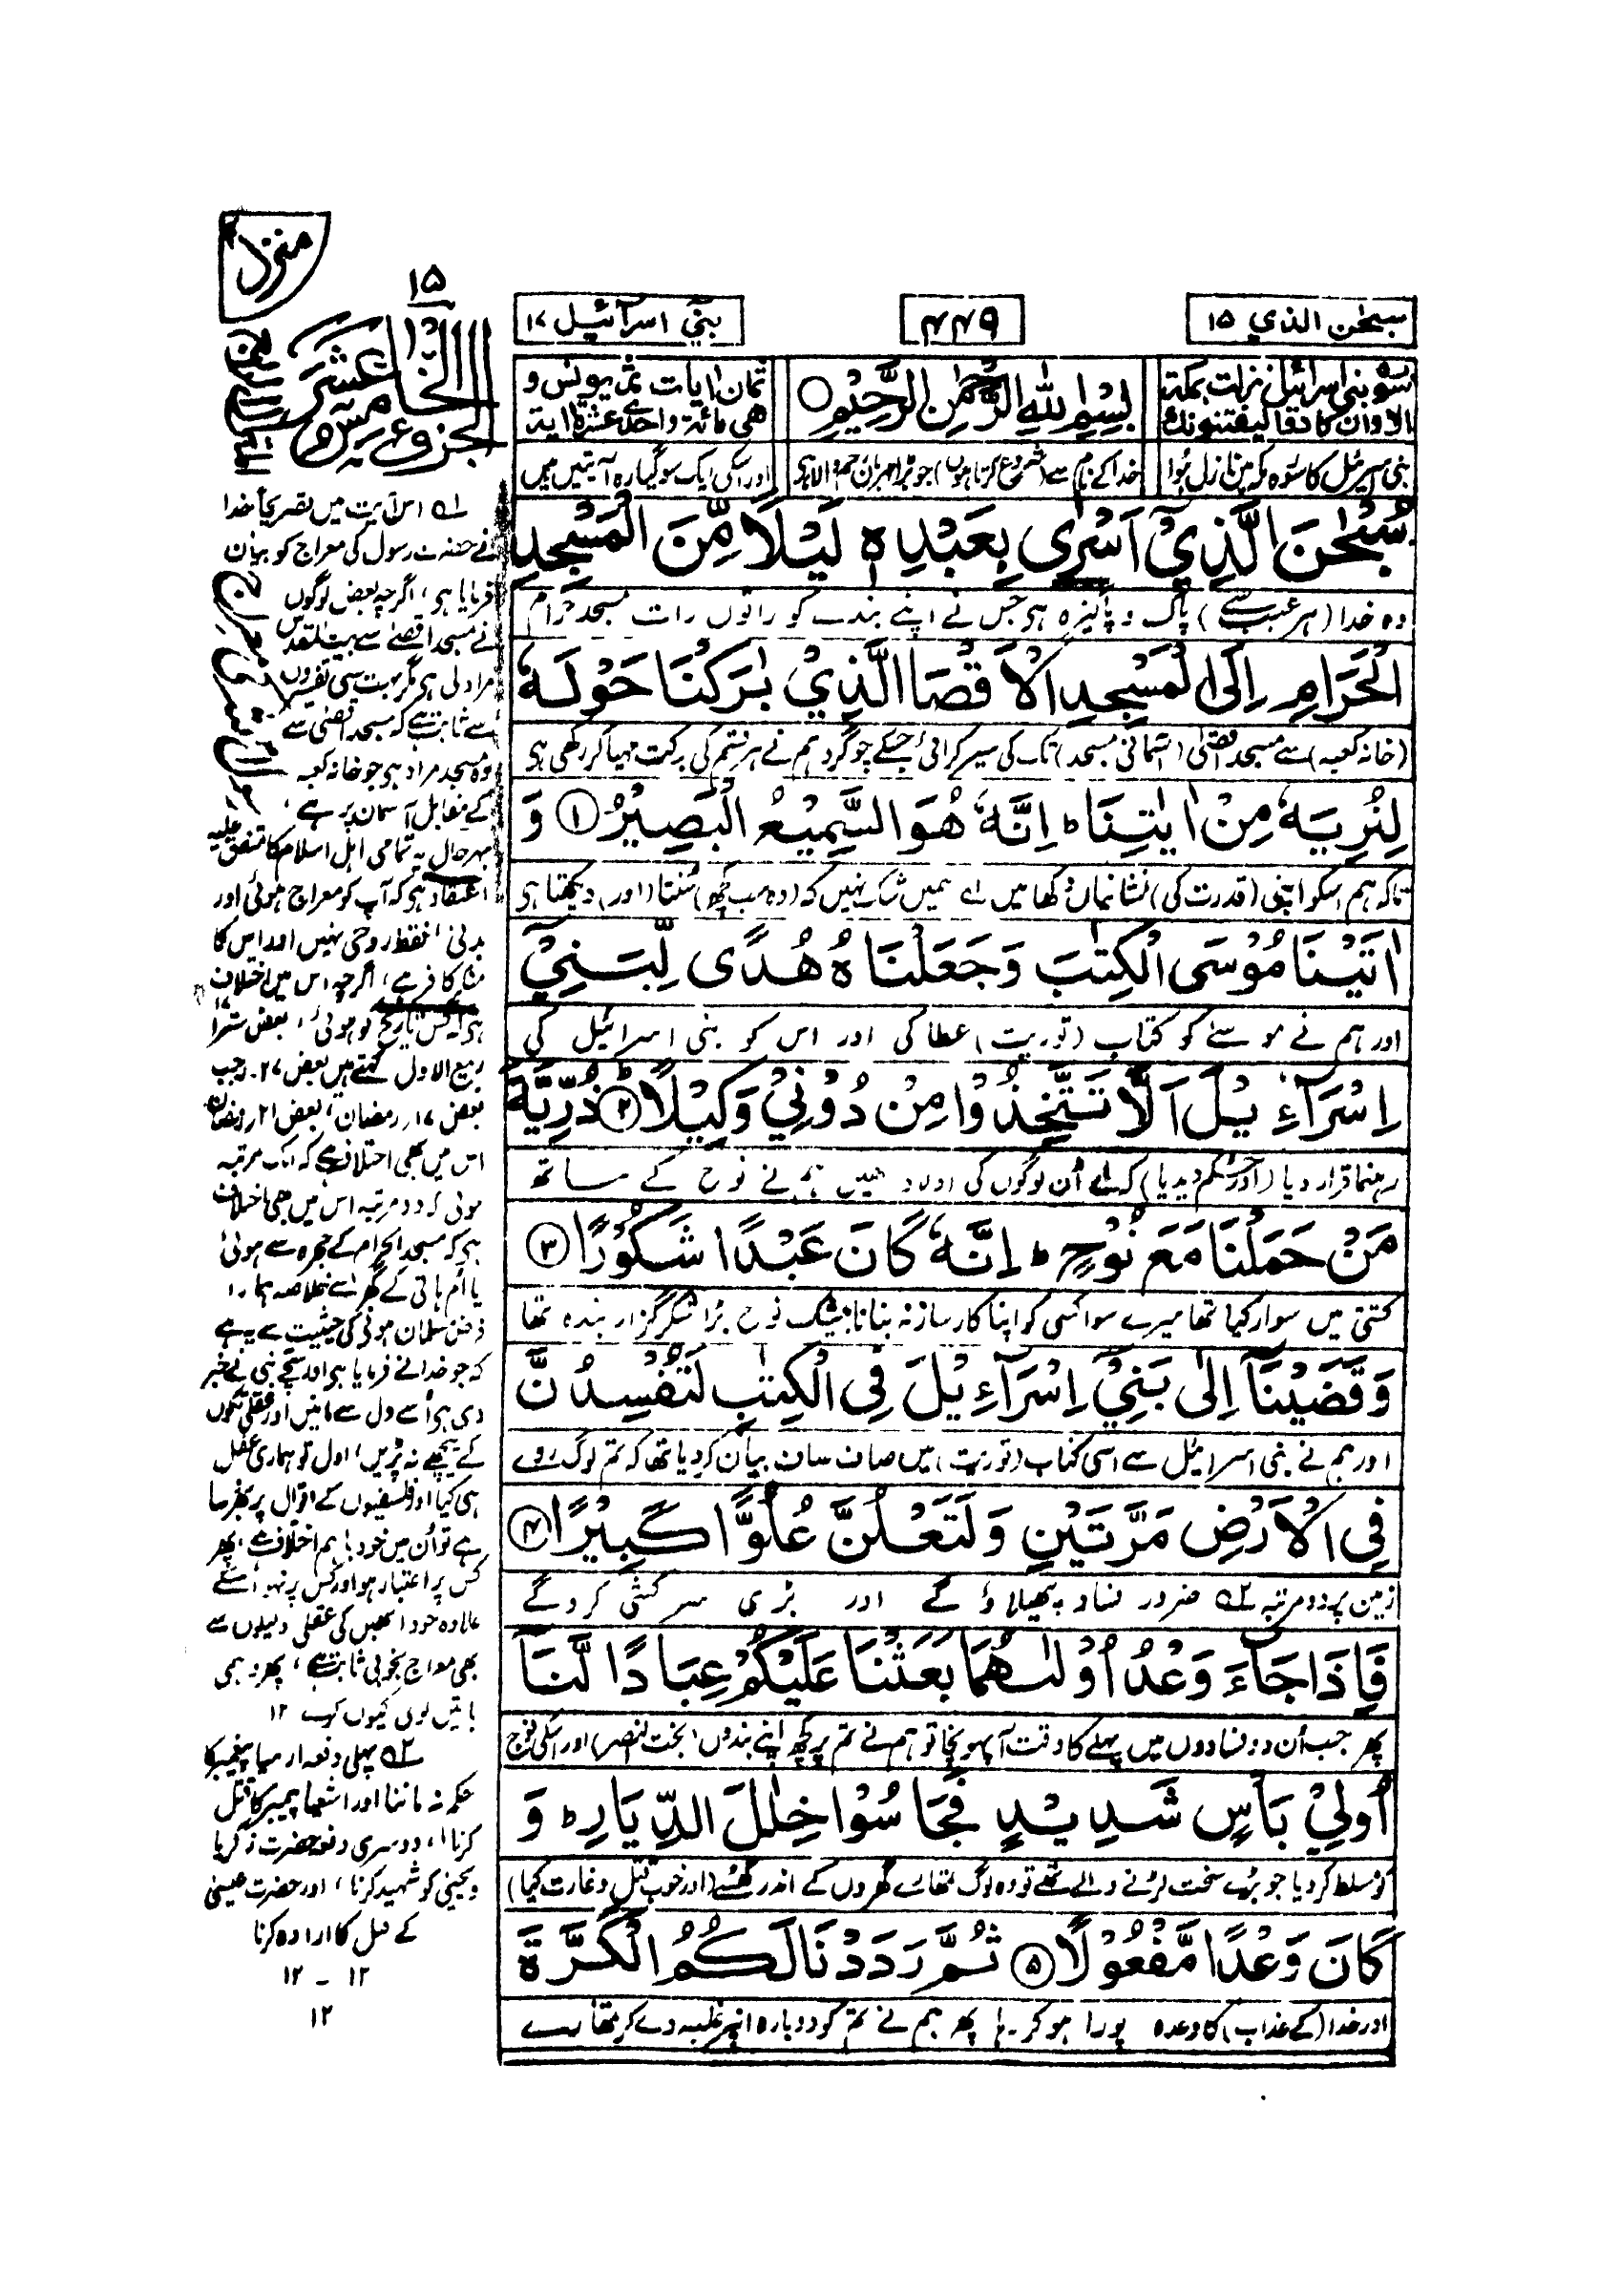 سبحٰن الذي ۱۵
۴۴۹
بني اسرآئيل ۱۷
منزل
۱۵
الجزوء الخامس عشر
سورة بنی اسرائیل نزلت بمکة
الا وان کادوا لیفتنونك
بِسْمِ اللّٰهِ الرَّحْمٰنِ الرَّحِيْمِ
ثمان اٰیات ثم یونس و
هی مائة واحدی عشرة اٰیة
بنی اسرائیل کا سورہ مکہ میں نازل ہُوا
خدا کے نام سے (شروع کرتا ہوں) جو بڑا مہربان رحم والا ہی
اور اسکی ایک سو گیارہ آیتیں ہیں
سُبْحٰنَ الَّذِيْٓ اَسْرٰى بِعَبْدِهٖ لَيْلًا مِّنَ الْمَسْجِدِ
وہ خدا (ہر عیب سے) پاک و پاکیزہ ہی جس نے اپنے بندے کو راتوں رات مسجد حرام
الْحَرَامِ اِلَى الْمَسْجِدِ الْاَقْصَا الَّذِيْ بٰرَكْنَا حَوْلَهٗ
(خانہ کعبہ) سے مسجد اقصٰی (آسمانی مسجد) تک کی سیر کرائی جسکے چوگرد ہم نے ہر قسم کی برکت مہیا کر رکھی ہی
لِنُرِيَهٗ مِنْ اٰيٰتِنَا ط اِنَّهٗ هُوَ السَّمِيْعُ الْبَصِيْرُ ۱ وَ
تاکہ ہم اسکو اپنی (قدرت کی) نشانیاں دکھائیں لہ اسمیں شک نہیں کہ (وہ سب کچھ) سُنتا (اور) دیکھتا ہی
اٰتَيْنَا مُوْسَى الْكِتٰبَ وَجَعَلْنٰهُ هُدًى لِّبَنِيْٓ
اور ہم نے موسیٰ کو کتاب (توریت) عطا کی اور اس کو بنی اسرائیل کی
اِسْرَآءِيْلَ اَلَّا تَتَّخِذُوْا مِنْ دُوْنِيْ وَكِيْلًا ۲ ذُرِّيَّةَ
رہنما قرار دیا (اور حکم دیدیا) کہ اے اُن لوگوں کی اولاد جنہیں ہم نے نوح کے ساتھ
مَنْ حَمَلْنَا مَعَ نُوْحٍ ط اِنَّهٗ كَانَ عَبْدًا شَكُوْرًا ۳
کشتی میں سوار کیا تھا میرے سوا کسی کو اپنا کارساز نہ بنانا بیشک نوح بڑا شکر گزار بندہ تھا
وَقَضَيْنَآ اِلٰى بَنِيْٓ اِسْرَآءِيْلَ فِى الْكِتٰبِ لَتُفْسِدُنَّ
اور ہم نے بنی اسرائیل سے اسی کتاب (توریت) میں صاف صاف بیان کر دیا تھا کہ تم لوگ روے
فِى الْاَرْضِ مَرَّتَيْنِ وَلَتَعْلُنَّ عُلُوًّا كَبِيْرًا ۴
زمین پر دو مرتبہ ۲ہ ضرور فساد پھیلاؤ گے اور بڑی سرکشی کرو گے
فَاِذَا جَآءَ وَعْدُ اُوْلٰىهُمَا بَعَثْنَا عَلَيْكُمْ عِبَادًا لَّنَآ
پھر جب اُن دو فسادوں میں پہلے کا وقت آ پہونچا تو ہم نے تم پر کچھ اپنے بندوں (بخت النصر) اور اسکی فوج
اُولِيْ بَاْسٍ شَدِيْدٍ فَجَاسُوْا خِلٰلَ الدِّيَارِ ط وَ
کو مسلط کر دیا جو بڑے سخت لڑنے والے تھے تو وہ لوگ تمھارے گھروں کے اندر گھسے (اور خوب قتل و غارت کیا)
كَانَ وَعْدًا مَّفْعُوْلًا ۵ ثُمَّ رَدَدْنَا لَكُمُ الْكَرَّةَ
اور خدا (کے عذاب) کا وعدہ پورا ہو کر رہا پھر ہم نے تم کو دوبارہ انپر غلبہ دے کر تمھارے
لہ اس آیت میں بتصریح خدا
نے حضرت رسول کی معراج کو بیان
فرمایا ہی، اگرچہ بعض لوگوں
نے مسجد اقصٰی سے بیت المقدس
مراد لی ہی مگر بہت سی تفسیروں
سے ثابت ہے کہ مسجد اقصٰی سے
وہ مسجد مراد ہی جو خانہ کعبہ
کے مقابل آسمان پر ہے،
بہر حال یہ تمامی اہل اسلام کا متفق علیہ
اعتقاد ہی کہ آپ کو معراج ہوئی اور
بدنی، فقط روحی نہیں اور اس کا
منکر کافر ہے، اگرچہ اس میں اختلاف
ہی کہ کس تاریخ کو ہوئی، بعض سترا ۱۷
ربیع الاول کہتے ہیں بعض ۲۷ رجب
بعض ۱۷ رمضان، بعض ۲۱ رمضان
اس میں بھی اختلاف ہے کہ ایک مرتبہ
ہوئی کہ دو مرتبہ اس میں بھی اختلاف
ہی کہ مسجد الحرام کے حجرہ سے ہوئی
یا اُم ہانی کے گھر سے خلاصہ ہمارا
فرض مسلمان ہونے کی حیثیت سے یہ ہے
کہ جو خدا نے فرمایا ہی اور سچے نبی نے خبر
دی ہی اُسے دل سے مانیں اور عقلی تکوں
کے پیچھے نہ پڑیں، اول تو ہماری عقل
ہی کیا اور فلسفیوں کے اقوال پر بھروسا
ہے تو اُن میں خود باہم اختلاف ہے، پھر
کس پر اعتبار ہو اور کس پر نہو اسکے
علاوہ خود انھیں کی عقلی دلیلوں سے
بھی معراج بخوبی ثابت ہے، پھر وہمی
باتیں کوئی کیوں کہے ۱۲
۲ہ پہلی دفعہ ارمیا پیغمبر کا
حکم نہ ماننا اور اشعیا پیمبر کا قتل
کرنا، دوسری دفعہ حضرت زکریا
و یحییٰ کو شہید کرنا، اور حضرت عیسیٰ
کے قتل کا ارادہ کرنا
۱۲ - ۱۲
۱۲